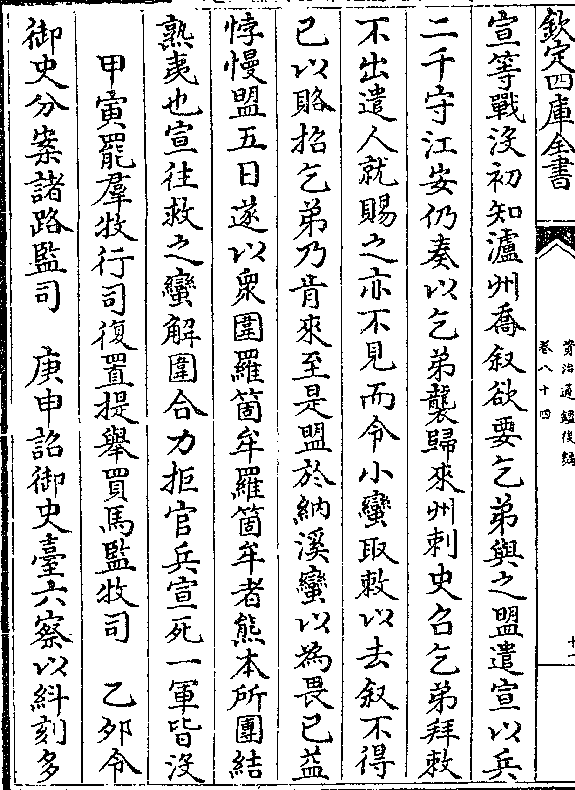 欽定四庫全書
資治通鑑後編
卷八十四
十一
宣等戰沒初知瀘州喬叙欲要乞弟與之盟遣宣以兵
二千守江安仍奏以乞弟襲歸來州刺史召乞弟拜敕
不出遣人就賜之亦不見而令小蠻取敕以去叙不得
已以賂招乞弟乃肯來至是盟於納溪蠻以為畏已益
悖慢盟五日遂以衆圍羅箇牟羅箇牟者熊本所團結
熟夷也宣往救之蠻解圍合力拒官兵宣死一軍皆沒
甲寅罷羣牧行司復置提舉買馬監牧司　乙夘令
御史分案諸路監司　庚申詔御史臺六察以糾刻多